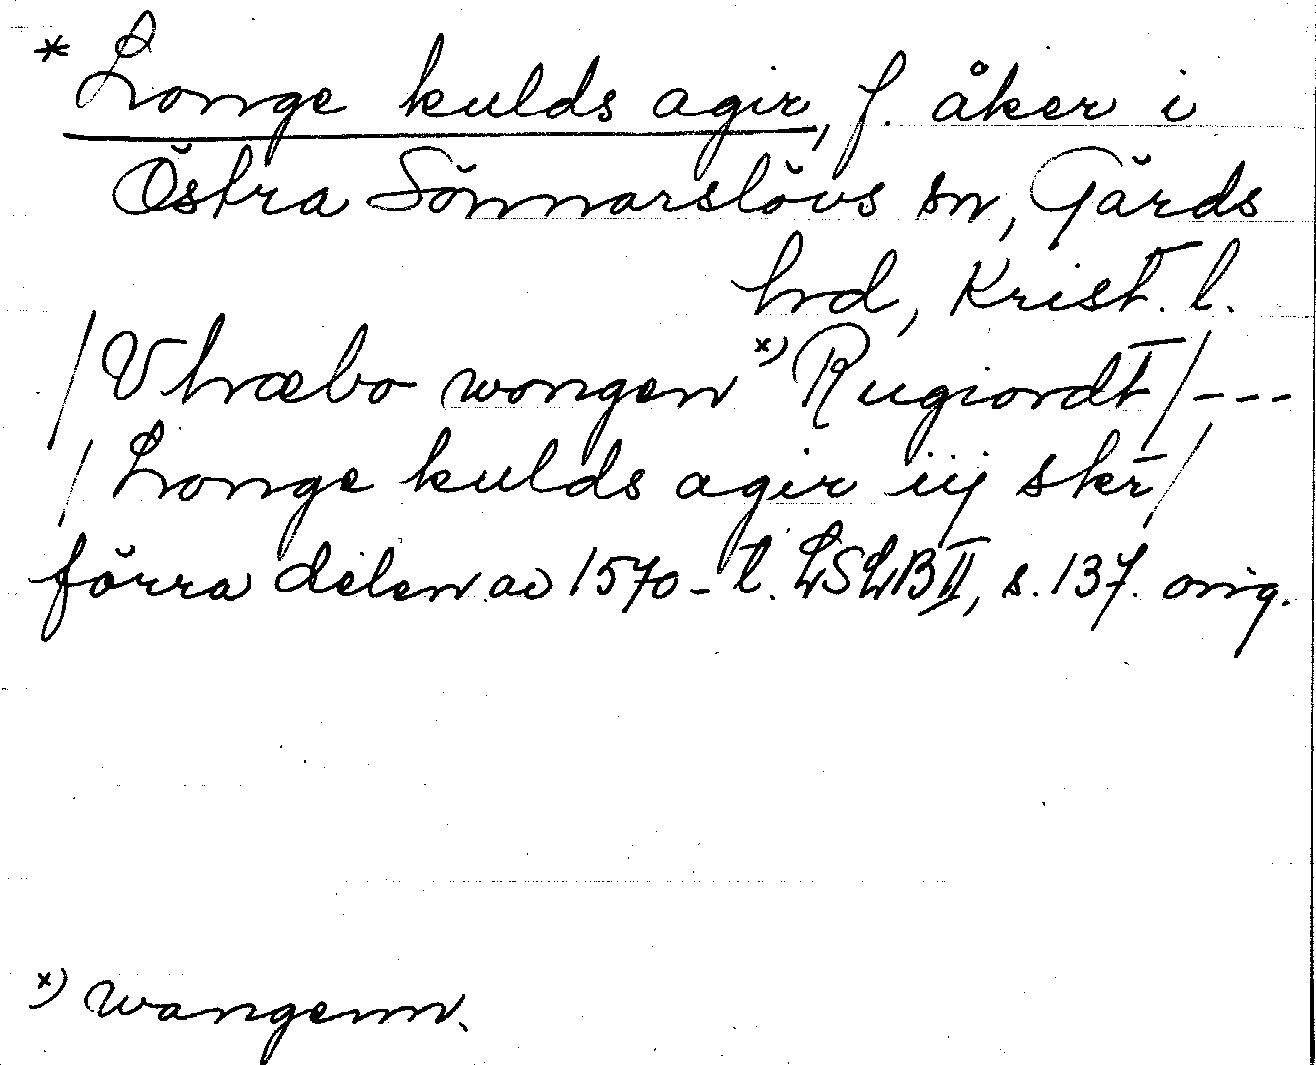 * Longe kulds agir, f. åker i
Östra Sönnarslövs sn, Gärds
hrd, Krist. l.
/ Vhræbo wongen x) Rugiordt / ---
/ Longe kulds agir iij skr /
förra delen av 1570-t. LSLB II, s. 137. orig.
x) wangenn.